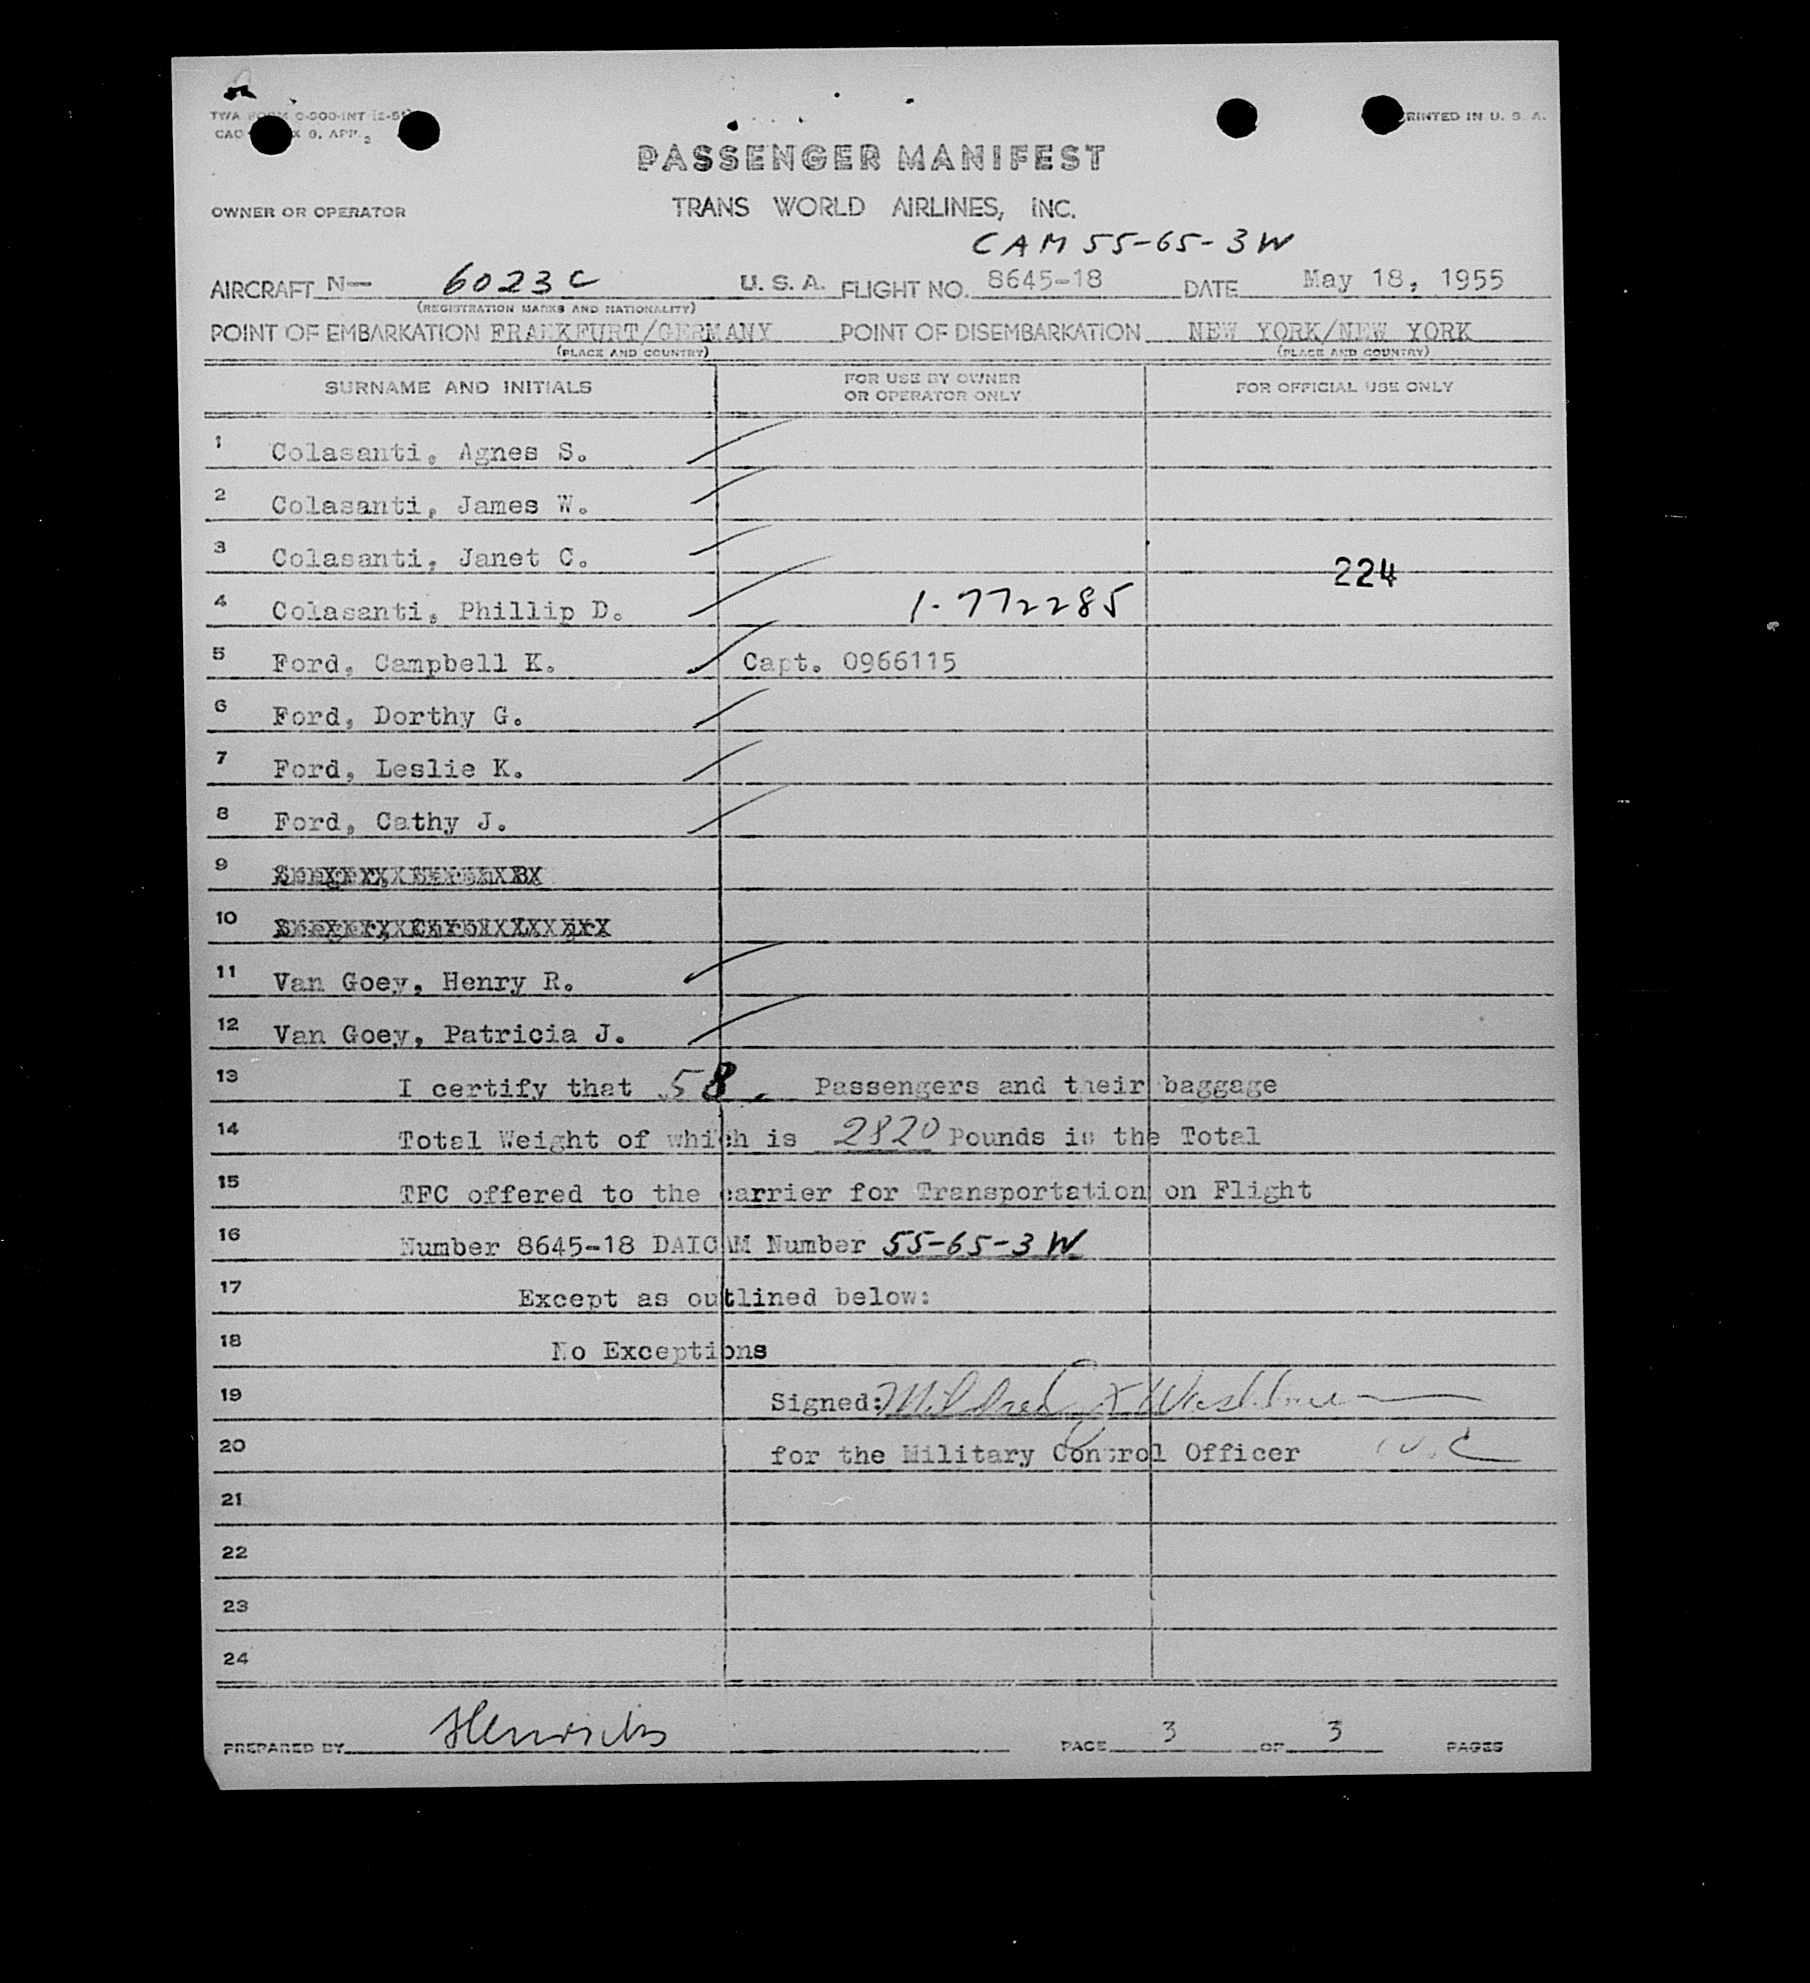 TWA FORM 0-300-INT (2-51)
PRINTED IN U. S. A.
CAO X 9, APP. 2
PASSENGER MANIFEST
OWNER OR OPERATOR TRANS WORLD AIRLINES, INC.
CAM 55-65-3W
AIRCRAFT N- 6023C U. S. A. FLIGHT NO. 8645-18 DATE May 18, 1955
(REGISTRATION MARKS AND NATIONALITY)
POINT OF EMBARKATION FRANKFURT/GERMANY POINT OF DISEMBARKATION NEW YORK/NEW YORK
(PLACE AND COUNTRY) (PLACE AND COUNTRY)
SURNAME AND INITIALS FOR USE BY OWNER OR OPERATOR ONLY FOR OFFICIAL USE ONLY
1 Colasanti, Agnes S.
2 Colasanti, James W.
3 Colasanti, Janet C.
224
4 Colasanti, Phillip D. 1-772285
5 Ford, Campbell K. Capt. 0966115
6 Ford, Dorthy G.
7 Ford, Leslie K.
8 Ford, Cathy J.
9
10
11 Van Goey, Henry R.
12 Van Goey, Patricia J.
13 I certify that 58. Passengers and their baggage
14 Total Weight of which is 2820 Pounds is the Total
15 TFC offered to the carrier for Transportation on Flight
16 Number 8645-18 DAICAM Number 55-65-3W
17 Except as outlined below:
18 No Exceptions
19 Signed: Mildred
20 for the Military Control Officer
21
22
23
24
PREPARED BY PAGE 3 OF 3 PAGES